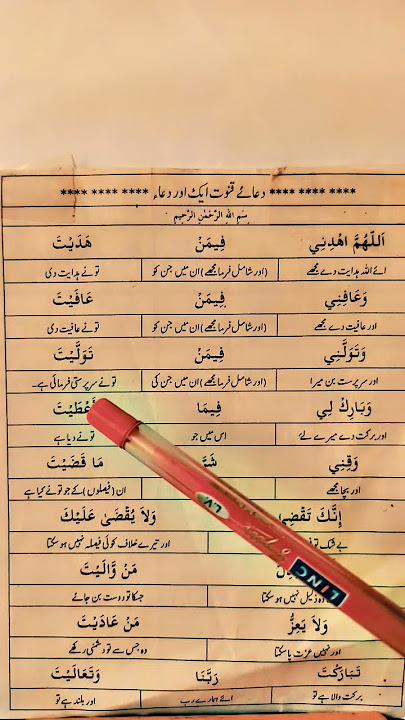 **** **** **** دعائے قنوت ایک اور دعاء **** **** ****
بِسْمِ اللهِ الرَّحْمٰنِ الرَّحِيْمِ
اَللّٰهُمَّ اهْدِنِي فِيمَنْ هَدَيْتَ
اے اللہ ہدایت دے مجھے (اور شامل فرما مجھے) ان میں جن کو تو نے ہدایت دی
وَعَافِنِي فِيمَنْ عَافَيْتَ
اور عافیت دے مجھے (اور شامل فرما مجھے) ان میں جن کو تو نے عافیت دی
وَتَوَلَّنِي فِيمَنْ تَوَلَّيْتَ
اور سرپرست بن میرا (اور شامل فرما مجھے) ان میں جن کی تو نے سرپرستی فرمائی ہے۔
وَبَارِكْ لِي فِيمَا أَعْطَيْتَ
اور برکت دے میرے لئے اس میں جو تو نے دیا ہے
وَقِنِي شَرَّ مَا قَضَيْتَ
اور بچا مجھے ان (فیصلوں) کے جو تو نے کیا ہے
إِنَّكَ تَقْضِي وَلاَ يُقْضَىٰ عَلَيْكَ
بے شک تو اور تیرے خلاف کوئی فیصلہ نہیں ہو سکتا
مَنْ وَّالَيْتَ
وہ ذلیل نہیں ہو سکتا جسکا تو دوست بن جائے
وَلاَ يَعِزُّ مَنْ عَادَيْتَ
اور نہیں عزت پا سکتا وہ جس سے تو دشمنی رکھے
تَبَارَكْتَ رَبَّنَا وَتَعَالَيْتَ
برکت والا ہے تو اے ہمارے رب اور بلند ہے تو
LINC